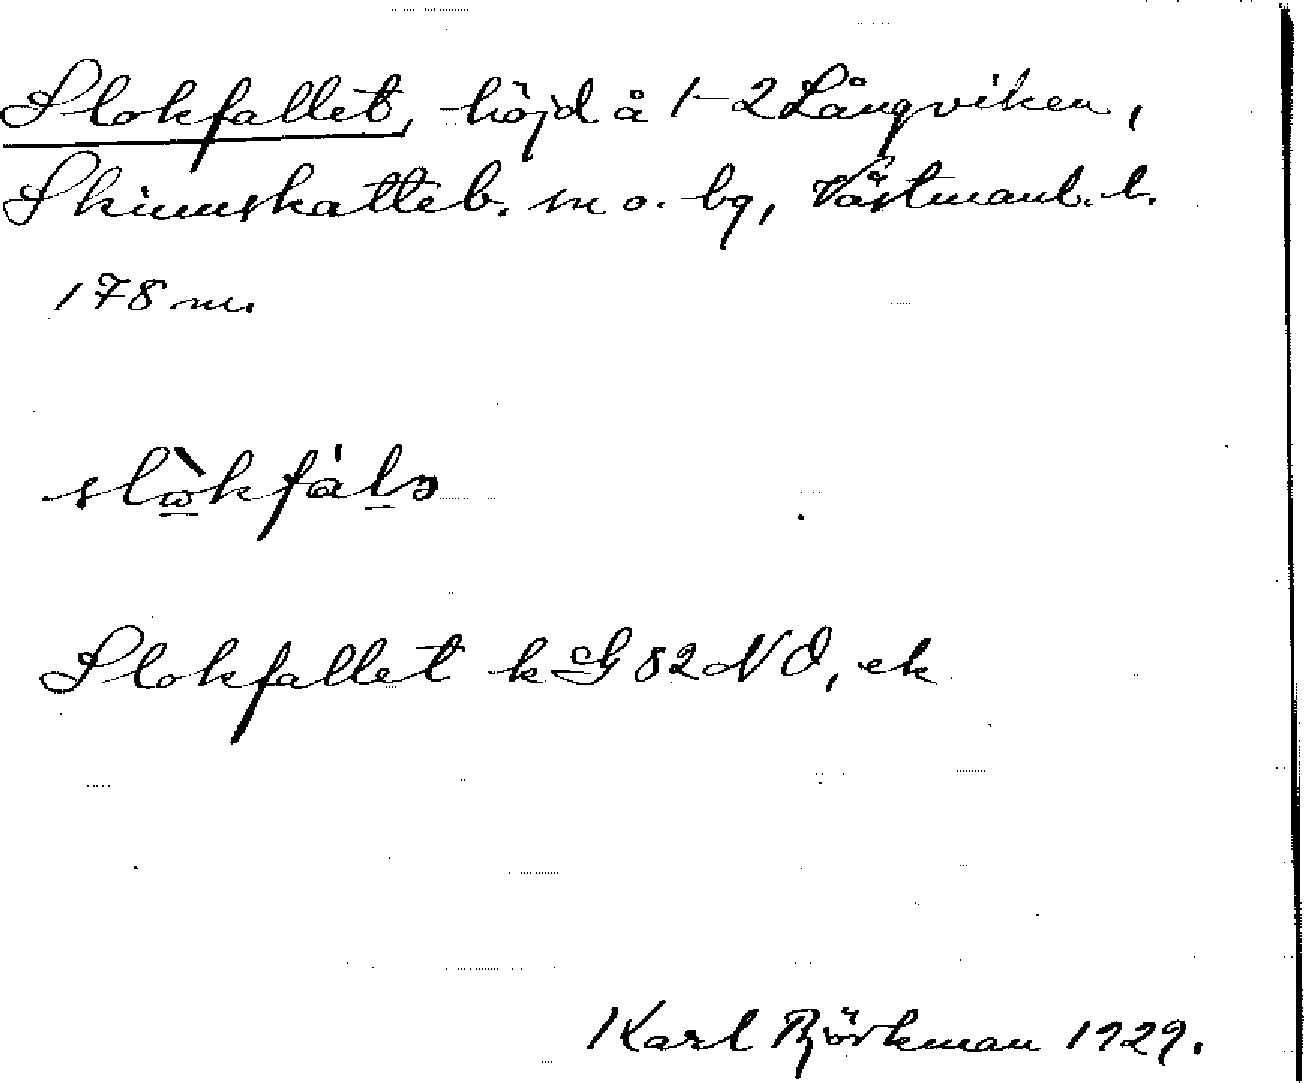 Slokfallet, höjd å 1-2 Långviken,
Skinnskatteb. sn o. bg, Västmanl. l.
178 m.
Slokfallet k G 82 NO, ek
Karl Björkman 1929.